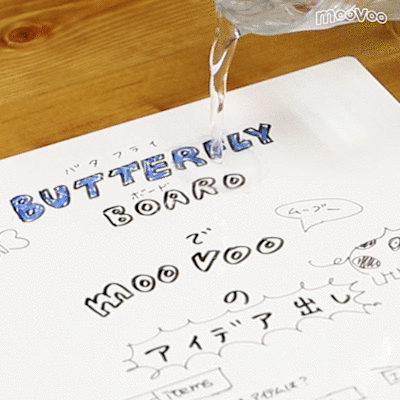 mooVoo
バタフライ
BUTTERFLY
ボード
BOARD
で
ムーブー
moo voo
の
アイデア出し